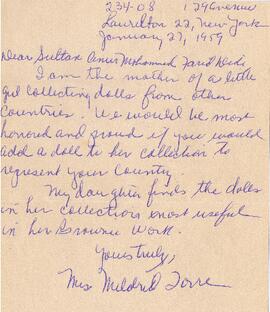 234-08 129 Avenue
Laurelton 22, New York
January 27, 1959
Dear Sultan Amir Mohamed Farid Didi
I am the mother of a little
girl collecting dolls from other
Countries. We would be most
honored and proud if you would
add a doll to her collection to
represent your Country.
My daughter finds the dolls
in her collection most useful
in her Brownie Work.
Yours truly,
Mrs Mildred Torre